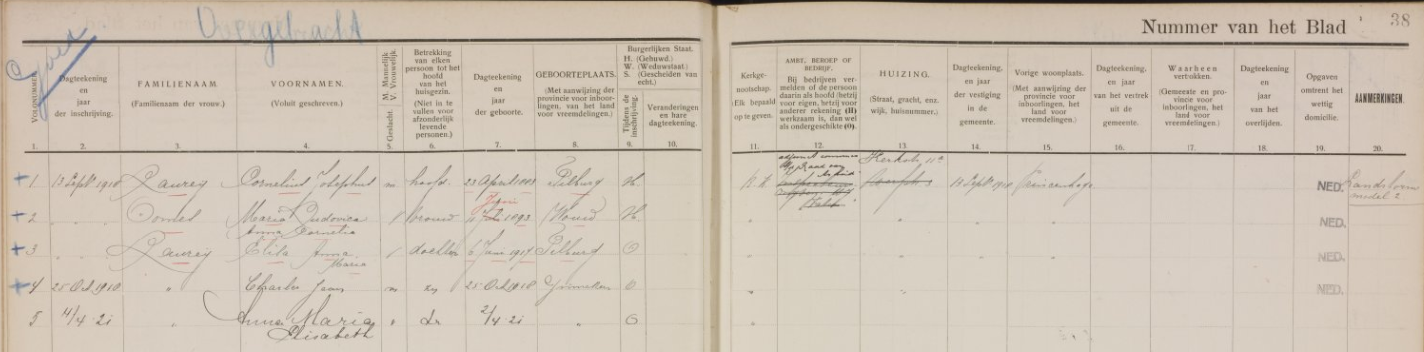 Overgebracht
Nummer van het Blad
38
VOLGNUMMER.
Dagteekening
en
jaar
der inschrijving.
FAMILIENAAM.
(Familienaam der vrouw.)
VOORNAMEN.
(Voluit geschreven.)
Geslacht M. Mannelijk. V. Vrouwelijk.
Betrekking
van elken
persoon tot het
hoofd
van het
huisgezin.
(Niet in te
vullen voor
afzonderlijk
levende
personen.)
Dagteekening
en
jaar
der geboorte.
GEBOORTEPLAATS.
(Met aanwijzing der
provincie voor inboor-
lingen, van het land
voor vreemdelingen.)
Burgerlijken Staat.
H. (Gehuwd.)
W. (Weduwstaat.)
S. (Gescheiden van
echt.)
Tijdens de
inschrijving.
Veranderingen
en hare
dagteekening.
Kerkge-
nootschap.
(Elk bepaald
op te geven.)
AMBT, BEROEP OF
BEDRIJF.
Bij bedrijven ver-
melden of de persoon
daarin als hoofd (hetzij
voor eigen, hetzij voor
anderer rekening (H)
werkzaam is, dan wel
als ondergeschikte (O).
HUIZING.
(Straat, gracht, enz.
wijk, huisnummer.)
Dagteekening,
en jaar
der vestiging
in de
gemeente.
Vorige woonplaats.
(Met aanwijzing der
provincie voor
inboorlingen, het
land voor
vreemdelingen.)
Dagteekening,
en jaar
van het vertrek
uit de
gemeente.
Waarheen
vertrokken.
(Gemeente en pro-
vincie voor
inboorlingen, het
land voor
vreemdelingen.)
Dagteekening
en
jaar
van het
overlijden.
Opgaven
omtrent het
wettig
domicilie.
AANMERKINGEN.
1. 2. 3. 4. 5. 6. 7. 8. 9. 10. 11. 12. 13. 14. 15. 16. 17. 18. 19. 20.
1 13 Sept 1918 Laurey Cornelius Josephus m hoofd 23 April 1888 Tilburg H R.K. Kerkstr 11a 18 Sept 1918 Princenhage NED. Landstorm
model 2
2 " " Maria Ludovica v vrouw 11 1893 Woud H " " " " NED.
Anna Cornelia
3 " " Laurey Elisa Anna v dochter 6 Juni 1917 Tilburg O " " " " NED.
Maria
4 25 Oct 1918 " Charles Jean m zn 25 Oct 1918 Ginneken O " " NED.
5 4/4 21 " Anna Maria v dr 2/4 21 " O "
Elisabeth